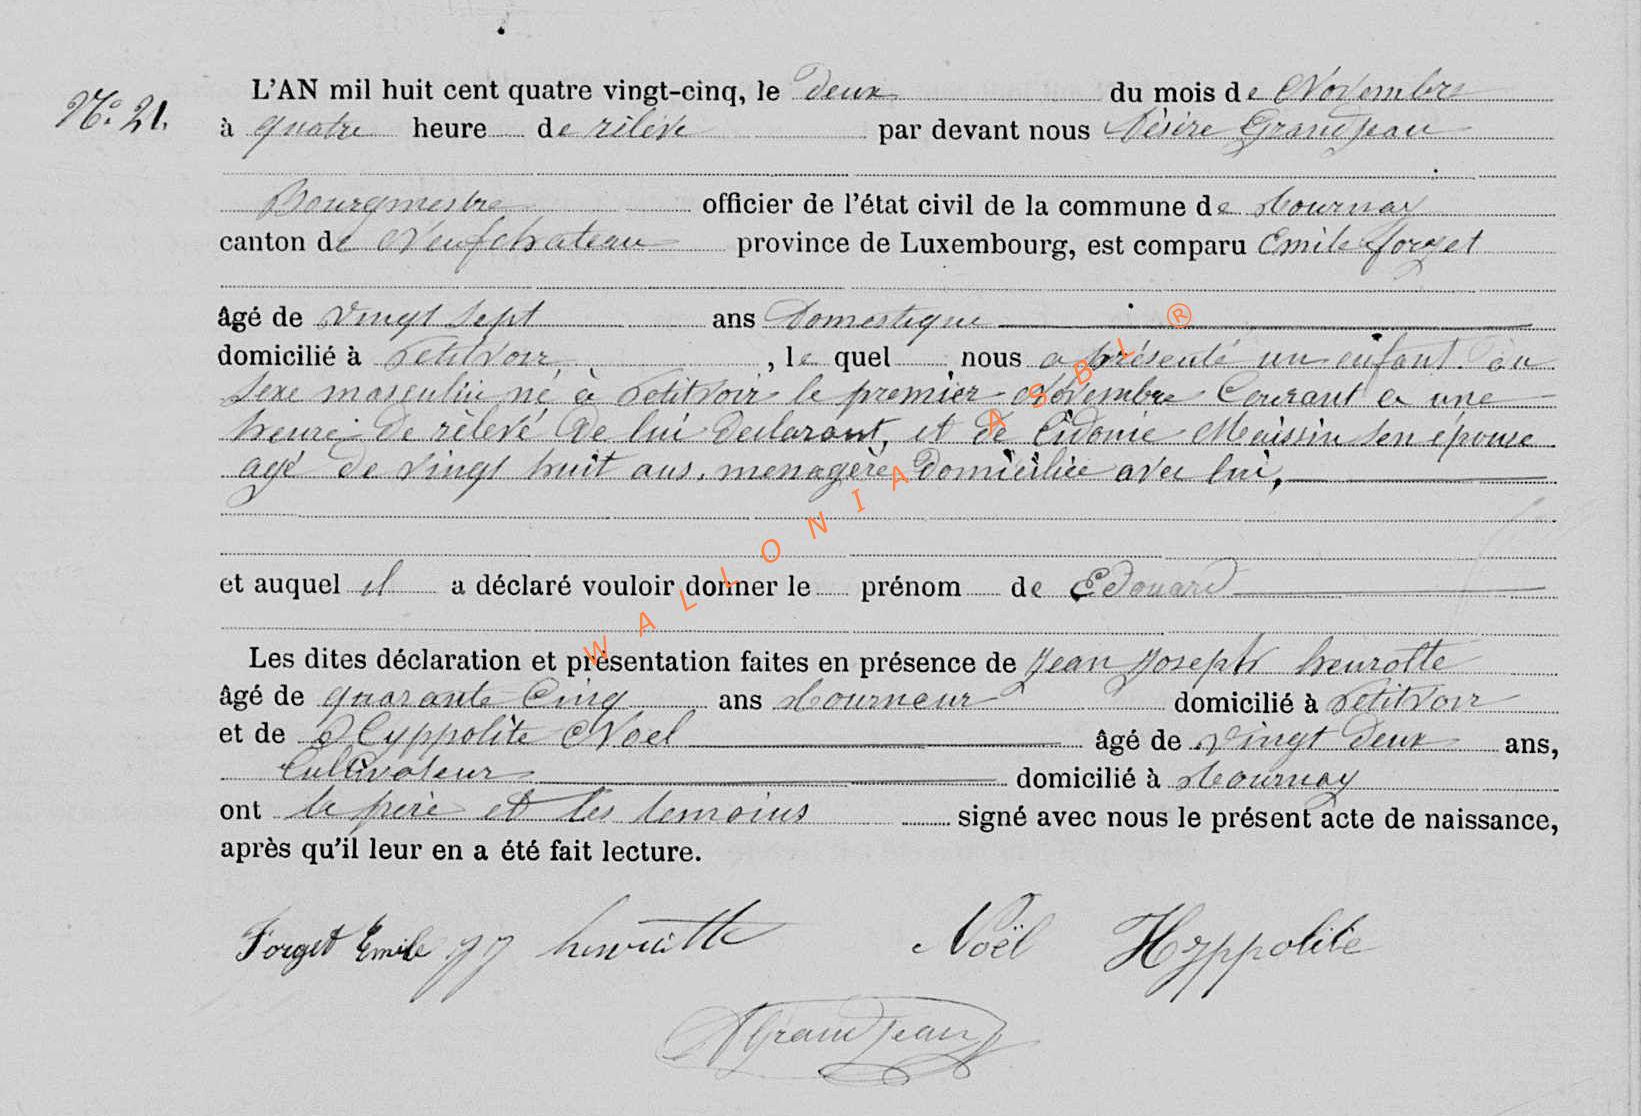 N° 21.
L'AN mil huit cent quatre vingt-cinq, le deux du mois de Novembre
à quatre heure de rélévé par devant nous Désiré Grandjean
Bourgmestre officier de l'état civil de la commune de Tournay
canton de Neufchateau province de Luxembourg, est comparu Emile forget
âgé de vingt sept ans Domestique
domicilié à Petitvoir, le quel nous a présenté un enfant du
sexe masculin né à Petitvoir le premier Novembre Courant a une
heure de rélevé de lui declarant, et de Sidonie Maissin son épouse
agé de vingt huit ans, menagère domiciliée avec lui,
et auquel il a déclaré vouloir donner le prénom de Edouard
Les dites déclaration et présentation faites en présence de Jean Joseph henrotte
âgé de quarante Cinq ans Tourneur domicilié à Petitvoir
et de Hyppolite Noel âgé de vingt deux ans,
Cultivateur domicilié à Tournay
ont le père et les temoins signé avec nous le présent acte de naissance,
après qu'il leur en a été fait lecture.
Forget Emile JJ Noël Hyppolite
DGrandjean
WALLONIA ASBL ®